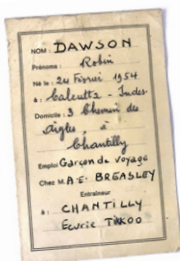 NOM: DAWSON
Prénoms: Robin
Né le: 24 Février 1954
à: Calcutta - Indes
Domicile: 3 Chemin des
Aigles, à
Chantilly
Emploi Garçon de voyage
Chez M. A-E. BREASLEY
Entraîneur
à: CHANTILLY
Écurie TIKOO